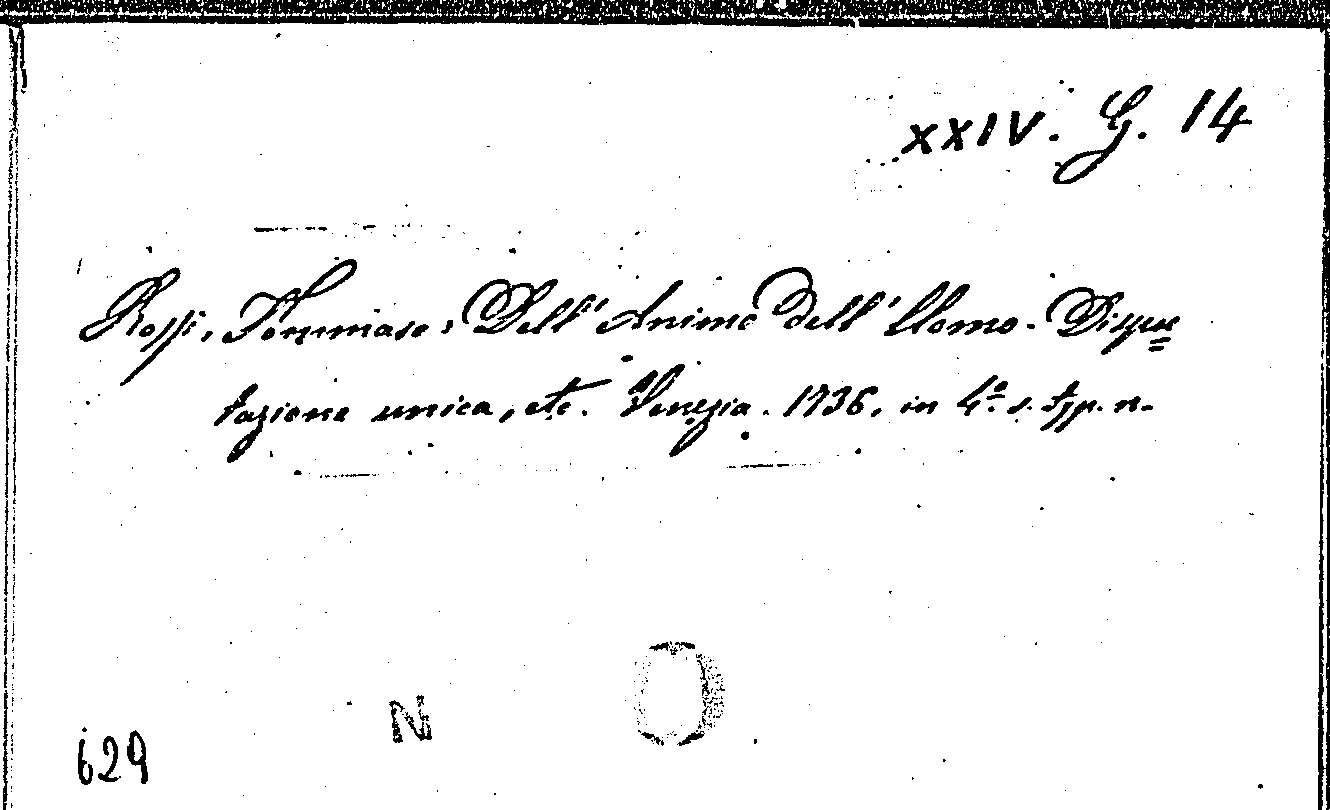 XXIV. G. 14
Rossi, Tommaso: Dell'Animo dell'Uomo. Dispu=
tazione unica, etc. Venezia. 1736. in 4.º s. typ. n.
N O
629